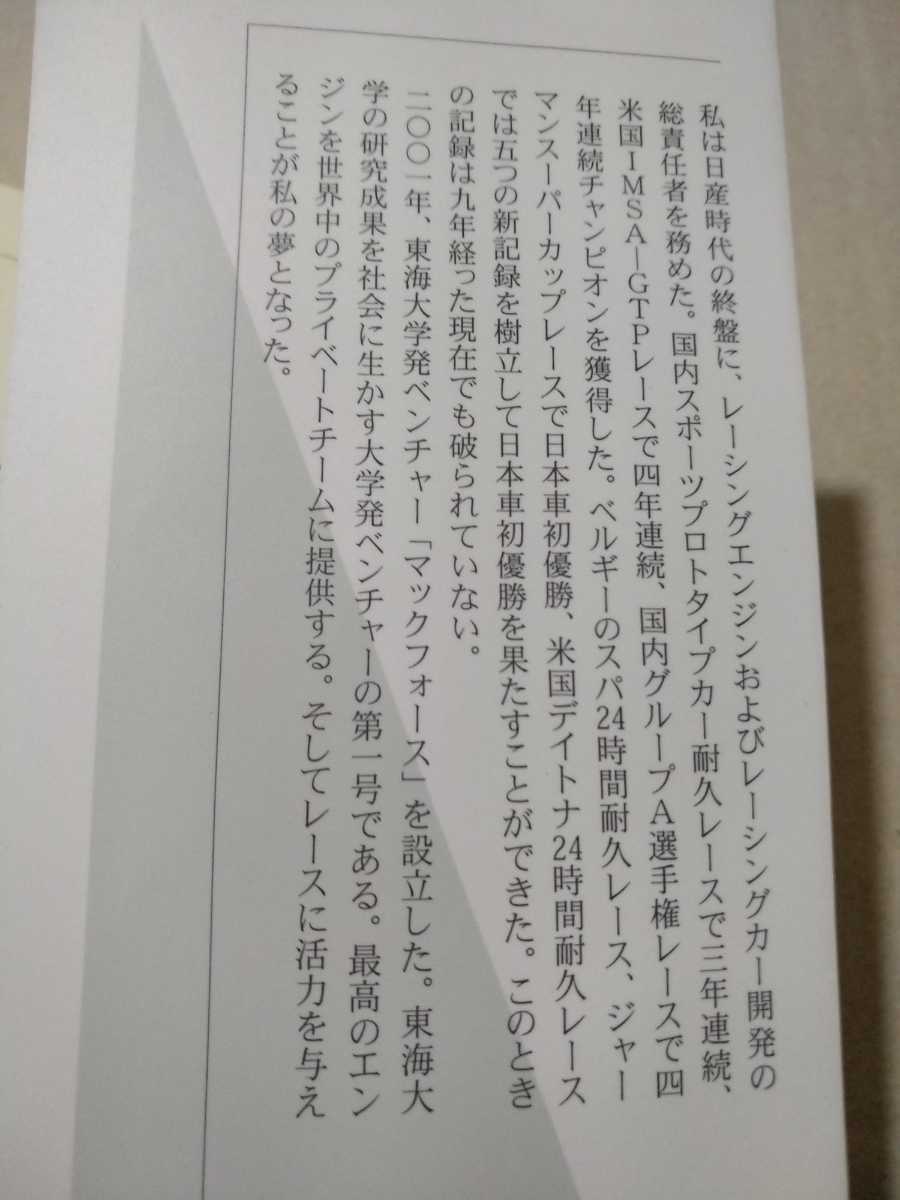 私は日産時代の終盤に、レーシングエンジンおよびレーシングカー開発の
総責任者を務めた。国内スポーツプロトタイプカー耐久レースで三年連続、
米国IMSA―GTPレースで四年連続、国内グループA選手権レースで四
年連続チャンピオンを獲得した。ベルギーのスパ24時間耐久レース、ジャー
マンスーパーカップレースで日本車初優勝、米国デイトナ24時間耐久レース
では五つの新記録を樹立して日本車初優勝を果たすことができた。このとき
の記録は九年経った現在でも破られていない。
二〇〇一年、東海大学発ベンチャー「マックフォース」を設立した。東海大
学の研究成果を社会に生かす大学発ベンチャーの第一号である。最高のエン
ジンを世界中のプライベートチームに提供する。そしてレースに活力を与え
ることが私の夢となった。